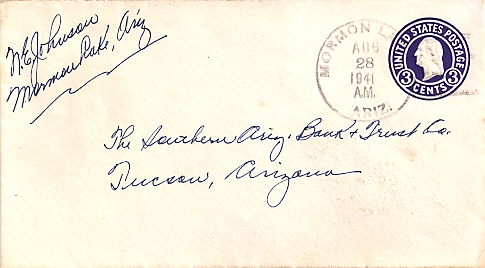 W.E. Johnson
Mormon Lake, Ariz
MORMON L
AUG
28
1941
A.M.
ARIZ.
UNITED STATES POSTAGE
3 3
CENTS
The Southern Ariz. Bank & Trust Co.
Tucson, Arizona